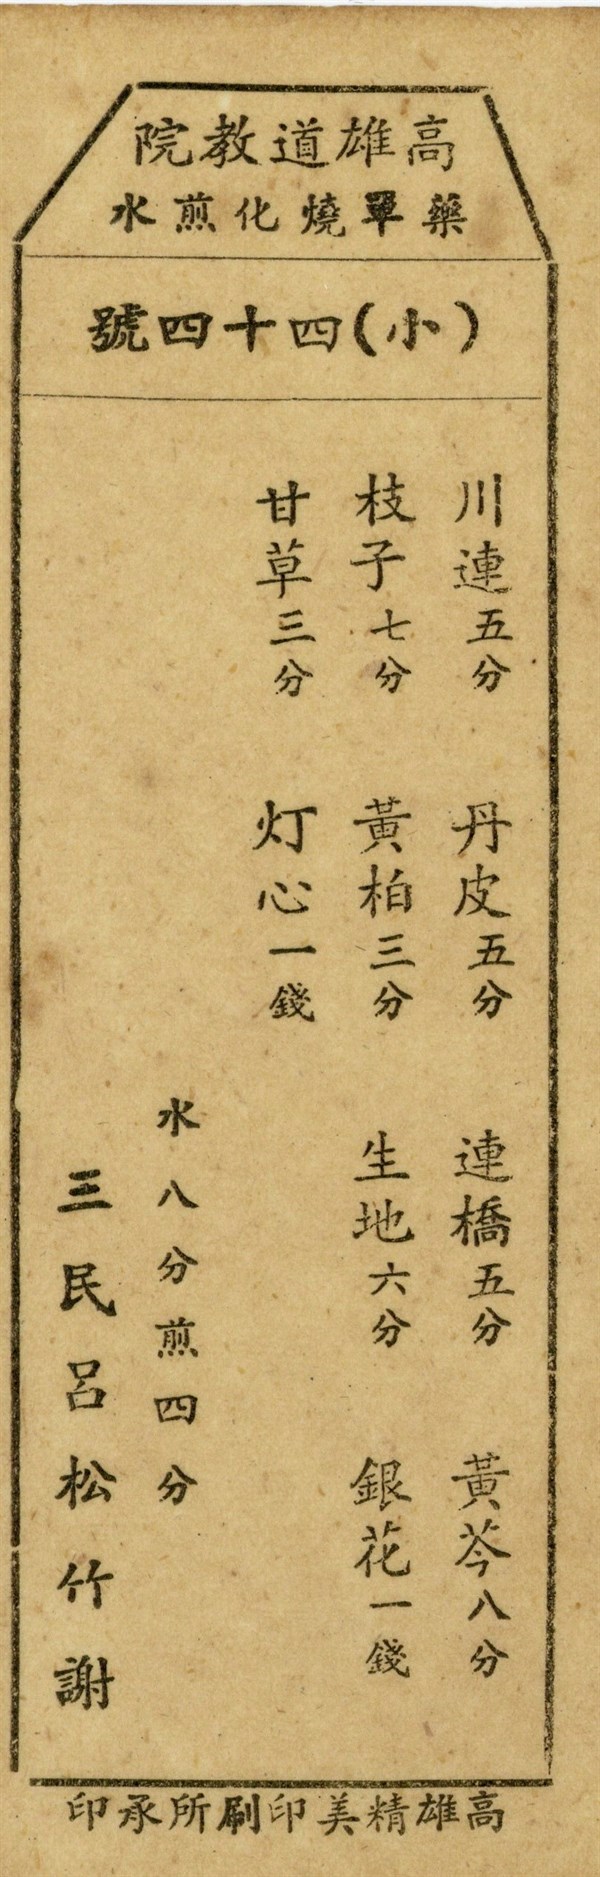 高雄道教院
藥單燒化煎水
(小)四十四號
川連五分 丹皮五分 連橋五分 黃芩八分
枝子七分 黃柏三分 生地六分 銀花一錢
甘草三分 灯心一錢
水八分煎四分
三民呂松竹謝
高雄精美印刷所承印